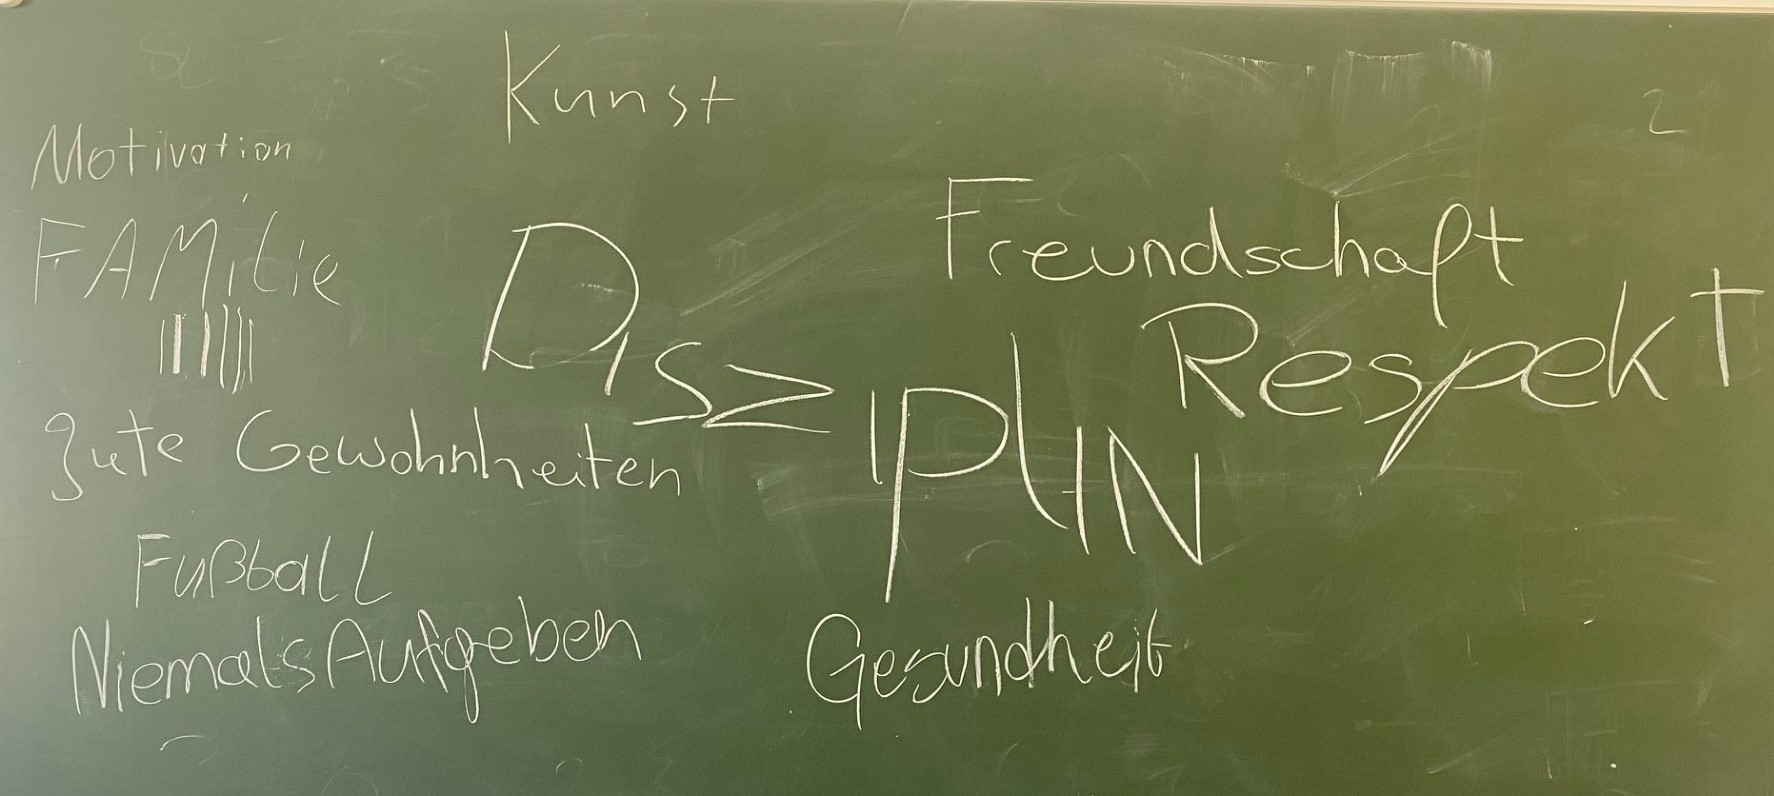 Kunst
Motivation
FAMilie
Freundschaft
DISZIPLIN
Respekt
gute Gewohnheiten
Fußball
Niemals Aufgeben
Gesundheit
2